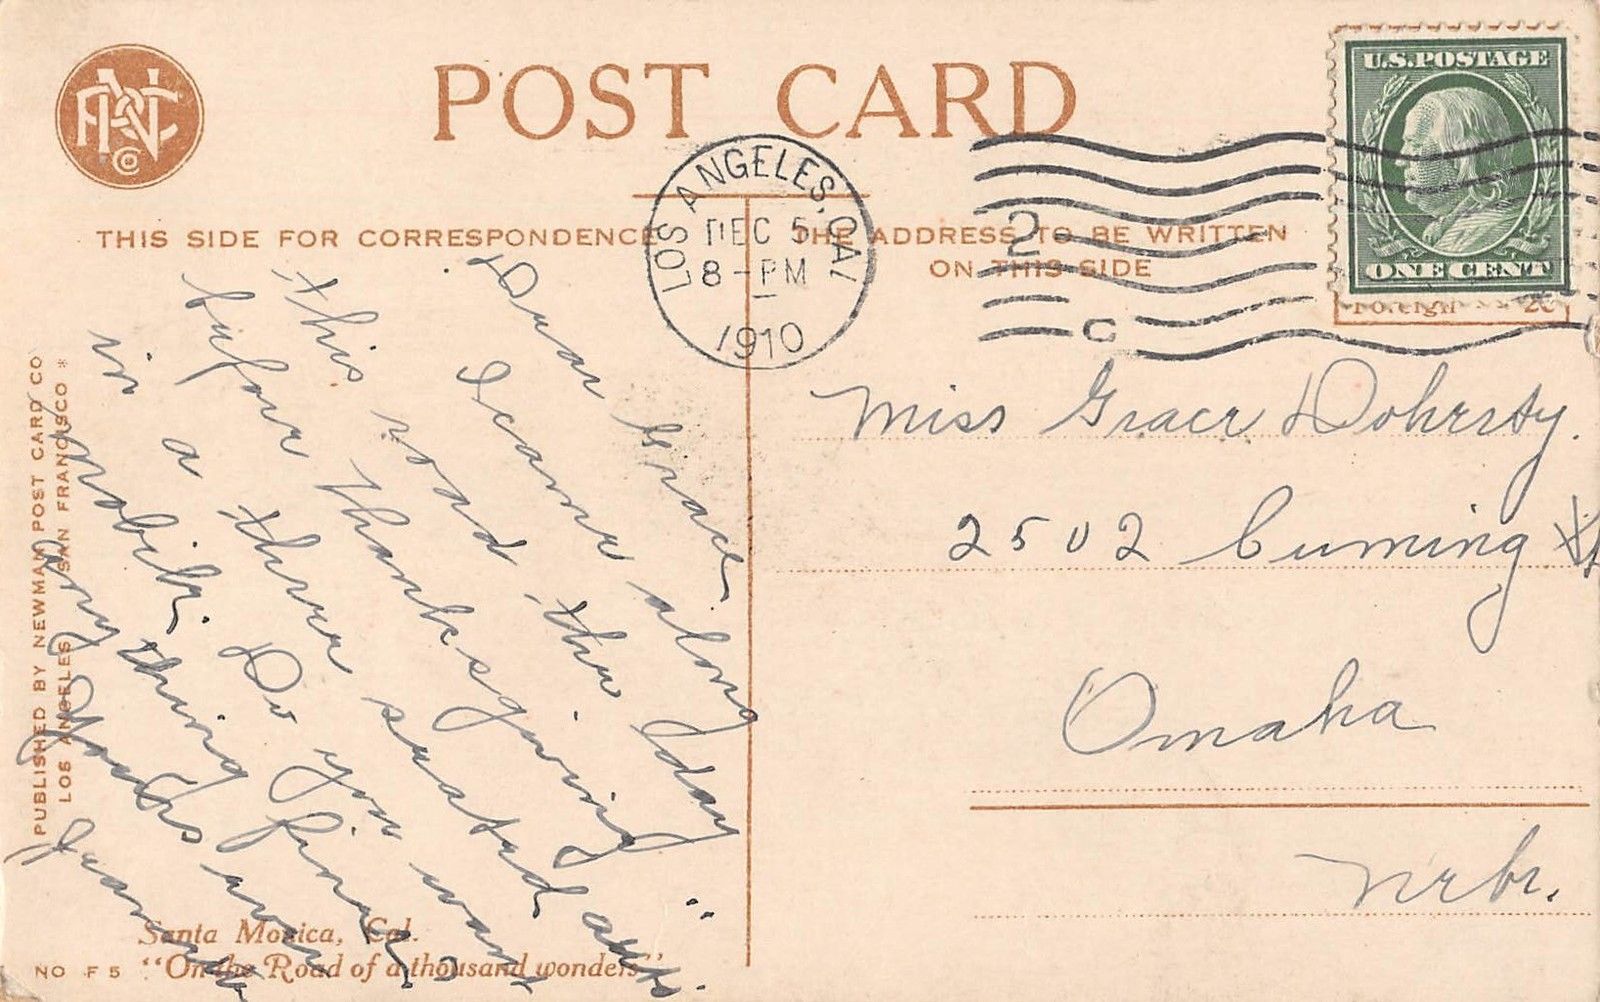 POST CARD
THIS SIDE FOR CORRESPONDENCE
THE ADDRESS TO BE WRITTEN
ON THIS SIDE
LOS ANGELES, CAL
DEC 5
8-PM
1910
2
C
U.S. POSTAGE
ONE CENT
Foreign 2c
Dear Grace
I came along
this road the day
before thanksgiving
in a three seated auto
mobile. Do you want
any thing finer
Yours ever
Miss Grace Doherty.
2502 Cuming St
Omaha
Nebr.
PUBLISHED BY NEWMAN POST CARD CO
LOS ANGELES SAN FRANCISCO *
Santa Monica, Cal.
NO F5 "On the Road of a thousand wonders"